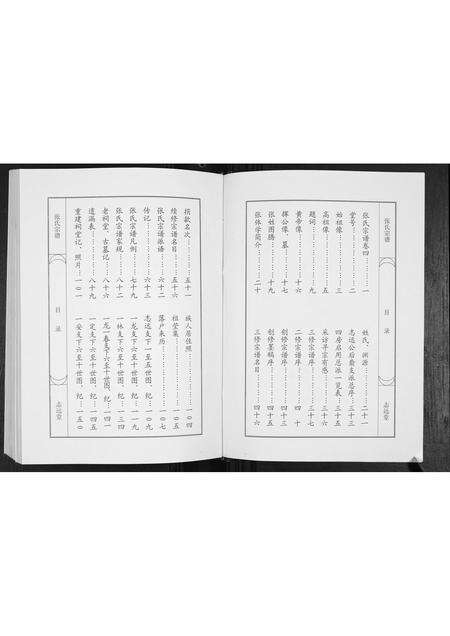 张氏宗谱
目录
志远堂
张氏宗谱卷四…………一
堂号…………二
始祖像…………三
高祖像…………五
题词…………九
黄帝像…………十六
挥公像、墓…………十七
张姓图腾…………十九
张体学简介…………二十
姓氏、渊源…………二十一
志远公后裔支派总序…三十三
四房启用总派一览表…三十五
采访寻宗有感…………三十六
三修宗谱序…………三十七
二修宗谱序…………四十
创修宗谱序…………四十三
创修墨稿序…………四十五
三修宗谱名目…………四十六
捐款名次…………五十一
续修宗谱名目…………五十六
张氏宗谱派语…………六十二
传记…………六十三
张氏宗谱凡例…………七十九
张氏宗谱家规…………八十二
老祠堂、古墓记…………八十六
遗漏表…………八十九
重建祠堂记、照片…一〇一
族人居住照…………一〇四
祖茔集…………一〇五
落户来历…………一〇七
志远支下一至五世图、纪…一〇九
一龙支下六至十世图、纪…一一九
一林支下六至十世图、纪…一二八
一定支下六至十世图、纪…一四五
一安支下六至十世图、纪…一五〇
张氏宗谱
目录
志远堂